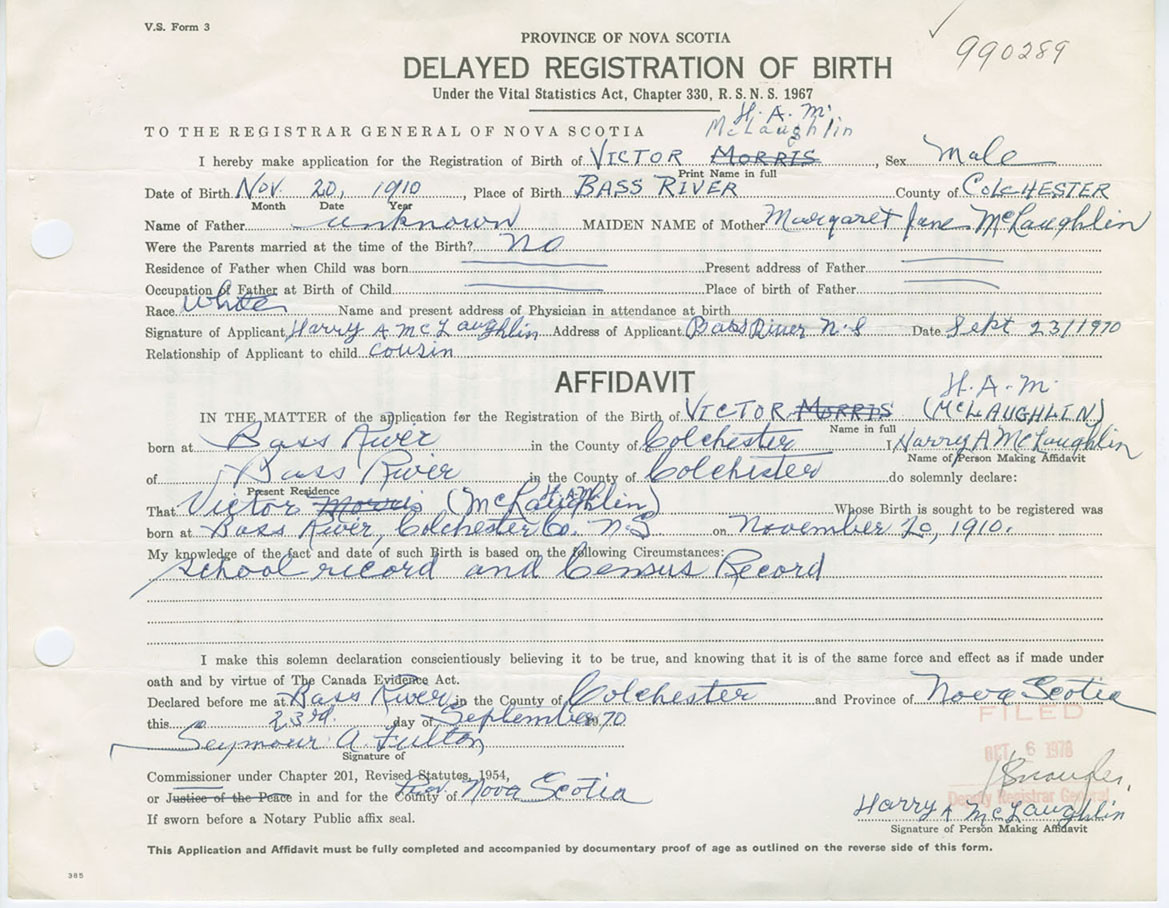 V.S. Form 3
990289
PROVINCE OF NOVA SCOTIA
DELAYED REGISTRATION OF BIRTH
Under the Vital Statistics Act, Chapter 330, R.S.N.S. 1967
H. A. M.
TO THE REGISTRAR GENERAL OF NOVA SCOTIA McLaughlin
I hereby make application for the Registration of Birth of VICTOR MORRIS, Sex Male
Print Name in full
Date of Birth Nov. 20, 1910, Place of Birth BASS RIVER County of COLCHESTER
Month Date Year
Name of Father unknown MAIDEN NAME of Mother Margaret Jane McLaughlin
Were the Parents married at the time of the Birth? no
Residence of Father when Child was born Present address of Father
Occupation of Father at Birth of Child Place of birth of Father
Race White Name and present address of Physician in attendance at birth
Signature of Applicant Harry A McLaughlin Address of Applicant Bass River N.S Date Sept 23/1970
Relationship of Applicant to child cousin
AFFIDAVIT
H. A. M.
IN THE MATTER of the application for the Registration of the Birth of VICTOR MORRIS (McLAUGHLIN)
Name in full
born at Bass River in the County of Colchester I, Harry A McLaughlin
Name of Person Making Affidavit
of Bass River in the County of Colchester do solemnly declare:
Present Residence
That Victor Morris (McLaughlin) H.A.M. Whose Birth is sought to be registered was
born at Bass River, Colchester Co. N.S on November 20, 1910.
My knowledge of the fact and date of such Birth is based on the following Circumstances:
School record and Census Record
I make this solemn declaration conscientiously believing it to be true, and knowing that it is of the same force and effect as if made under
oath and by virtue of The Canada Evidence Act.
Declared before me at Bass River in the County of Colchester and Province of Nova Scotia
this 23rd. day of September 1970.
FILED
Seymour A. Fulton
OCT. 6 1970
Signature of
Commissioner under Chapter 201, Revised Statutes, 1954,
or Justice of the Peace in and for the County of Prov. Nova Scotia
Deputy Registrar General
Harry A McLaughlin
If sworn before a Notary Public affix seal.
Signature of Person Making Affidavit
This Application and Affidavit must be fully completed and accompanied by documentary proof of age as outlined on the reverse side of this form.
385